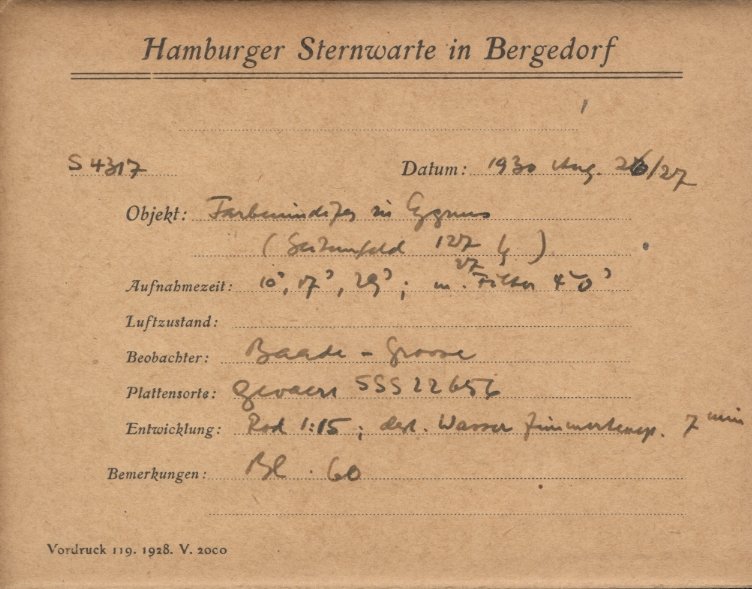 Hamburger Sternwarte in Bergedorf
S 4317 Datum: 1930 Aug. 26/27
Objekt: Farbenindizes in Cygnus
( )
Aufnahmezeit: 10', 17', 29'; m. Filter 40'
Luftzustand:
Beobachter: Baade -
Plattensorte: Gevaert SSS 22656
Entwicklung: Rod 1:15; dest. Wasser Zimmertemp. 7 min
Bemerkungen: Bl. 60
Vordruck 119. 1928. V. 2000